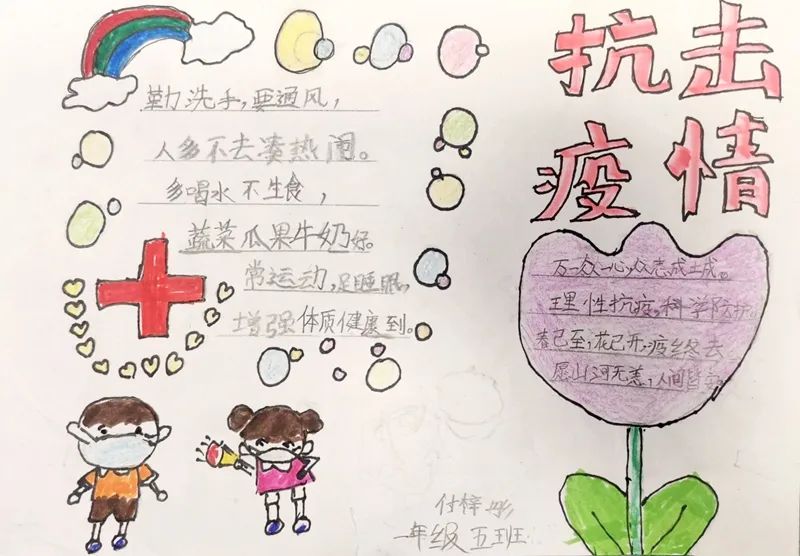 抗击
疫情
勤洗手，要通风，
人多不去凑热闹。
多喝水不生食，
蔬菜瓜果牛奶好。
常运动，足睡眠，
增强体质健康到。
万众一心，众志成城。
理性抗疫，科学防抗。
春已至，花已开，疫终去
愿山河无恙，人间皆安
付梓彤
一年级五班